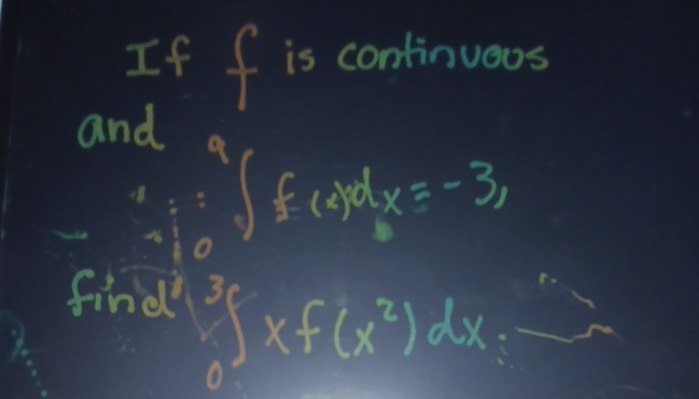 If f is continuous
and
9
∫ f(x)dx = -3,
0
find 3
∫ x f(x²) dx.
0